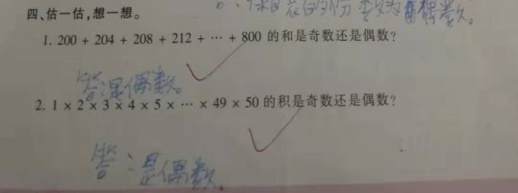 四、估一估,想一想。
1. 200 + 204 + 208 + 212 + … + 800 的和是奇数还是偶数?
答:是偶数。
2. 1 × 2 × 3 × 4 × 5 × … × 49 × 50 的积是奇数还是偶数?
答:是偶数。